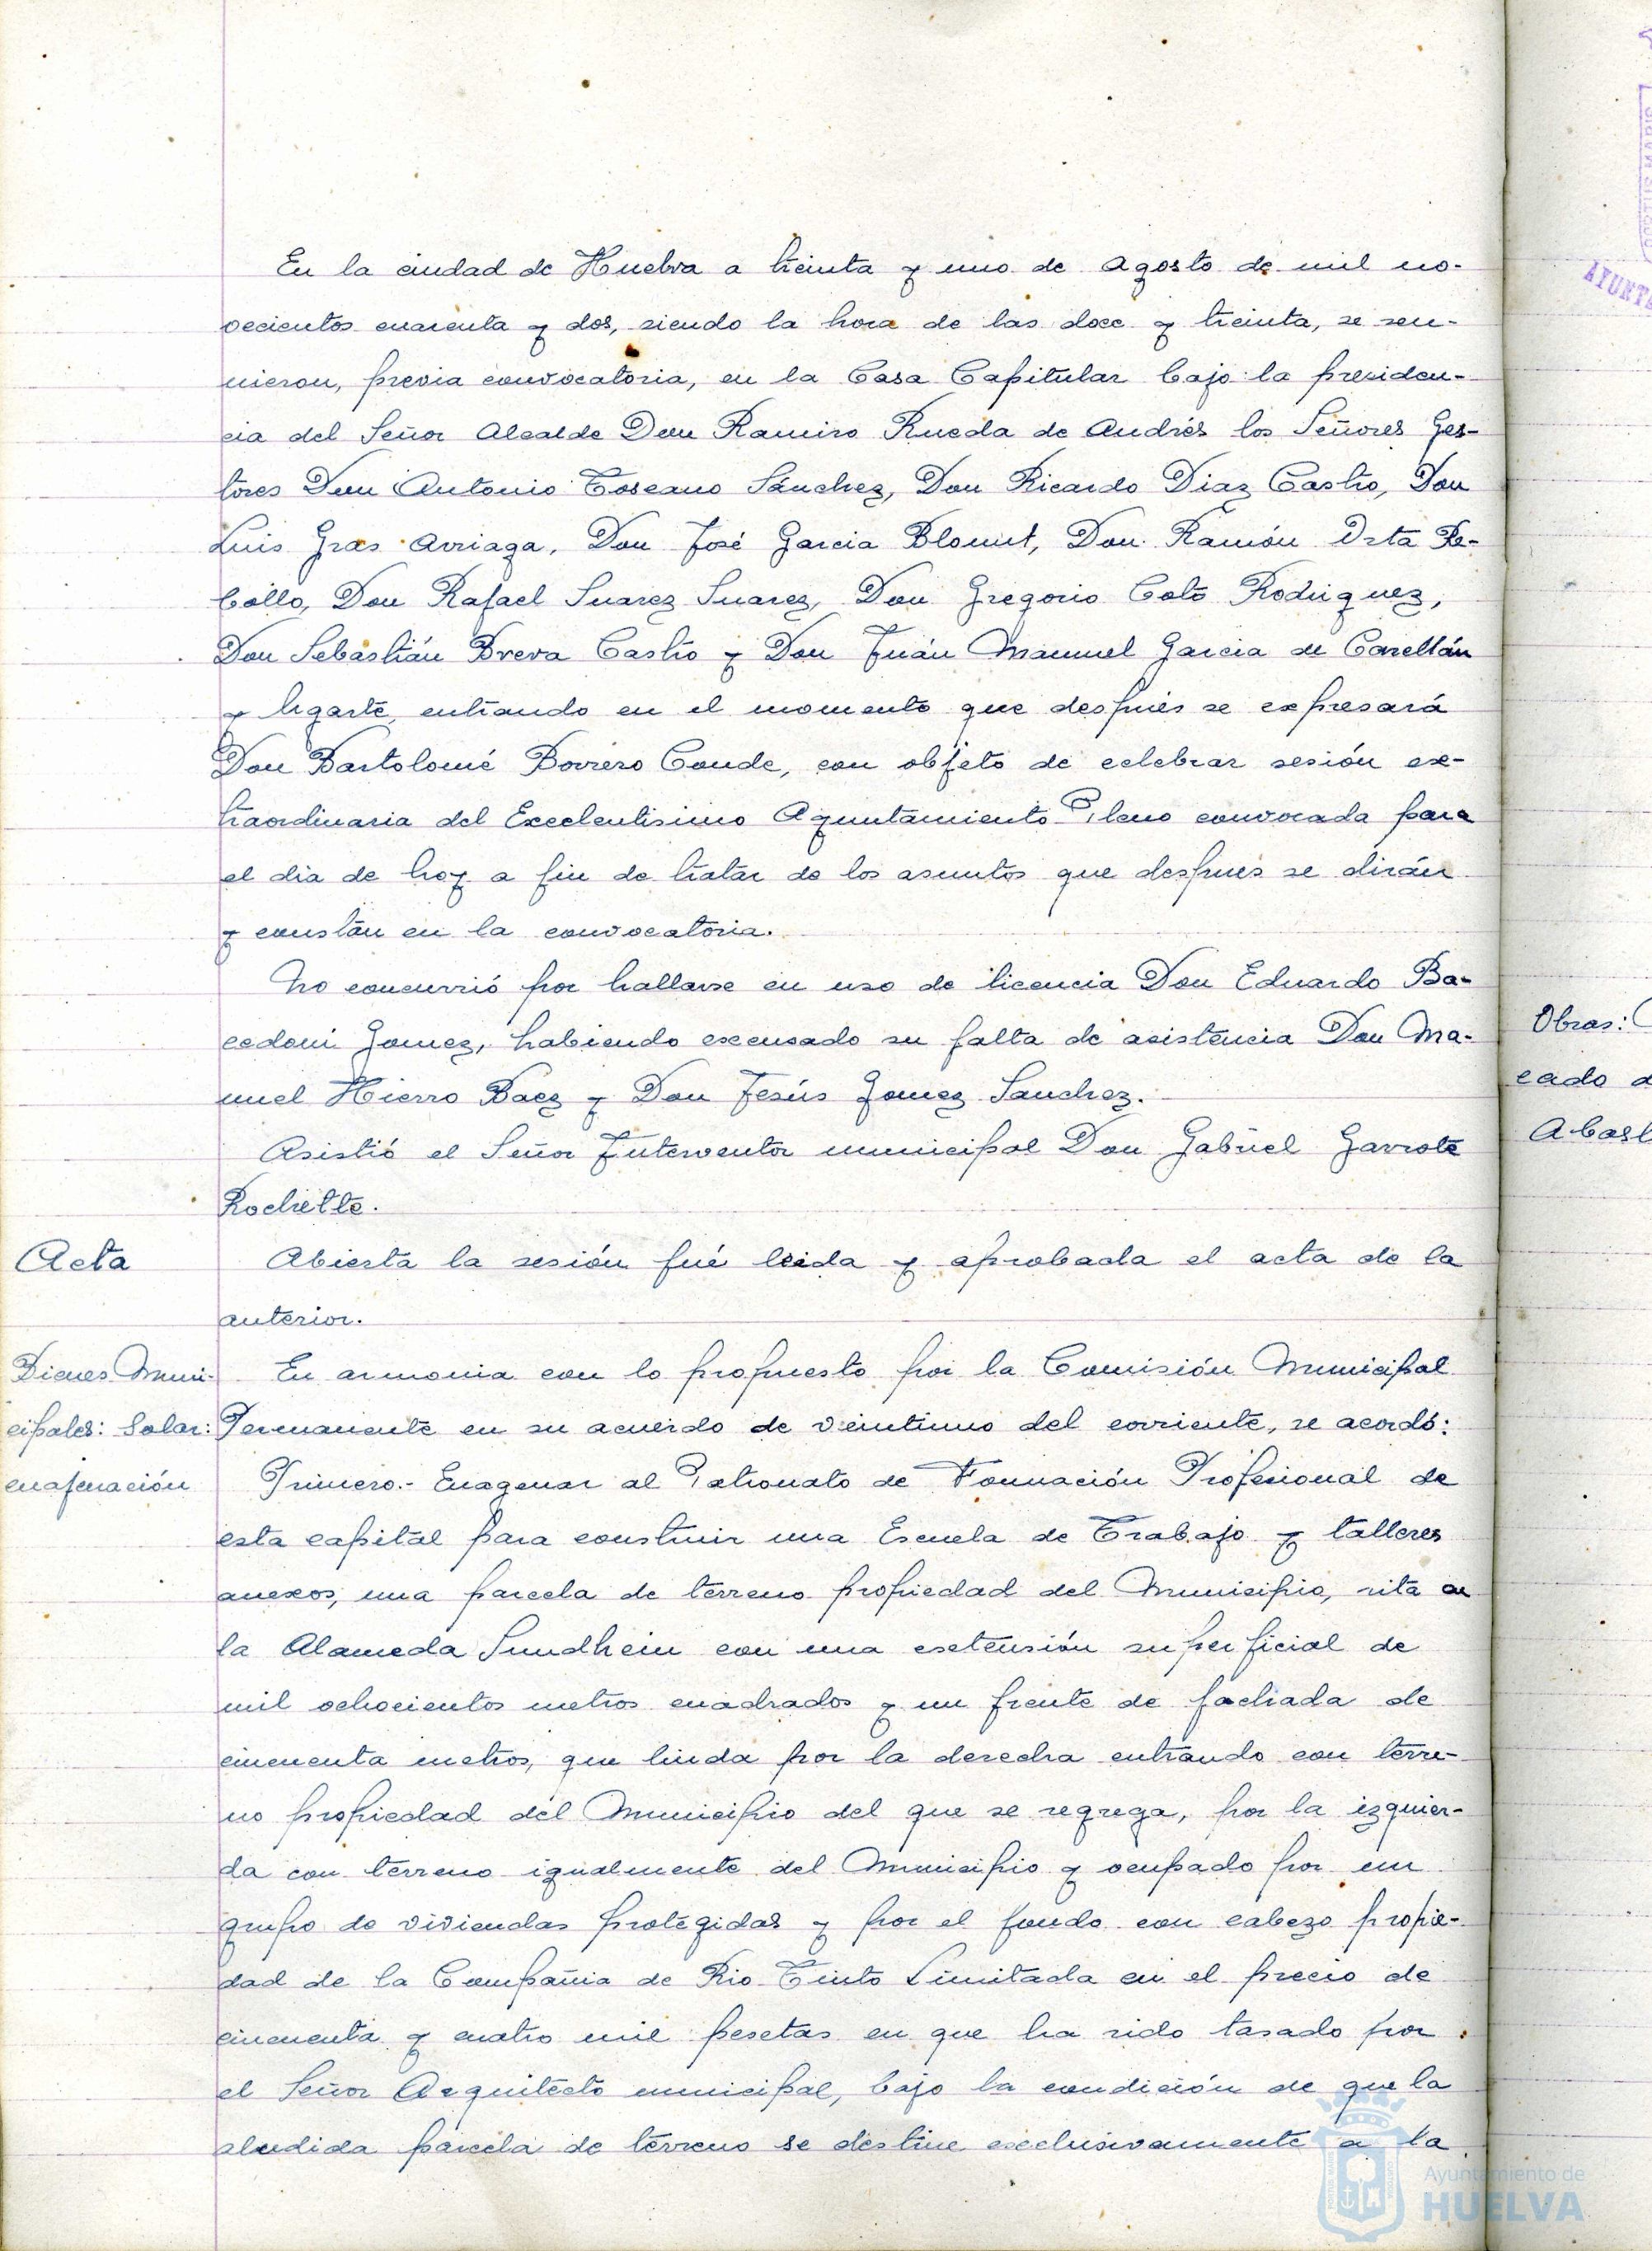 En la ciudad de Huelva a treinta y uno de Agosto de mil no-
vecientos cuarenta y dos, siendo la hora de las doce y treinta, se reu-
nieron, previa convocatoria, en la Casa Capitular bajo la presiden-
cia del Señor Alcalde Don Ramiro Rueda de Andrés los Señores Ges-
tores Don Antonio Toscano Sánchez, Don Ricardo Diaz Castro, Don
Luis Gras Arriaga, Don José Garcia Blount, Don Ramón Orta Re-
bollo, Don Rafael Suarez Suarez, Don Gregorio Coto Rodriguez,
Don Sebastián Breva Castro y Don Juán Manuel Garcia de
y Ugarte, entrando en el momento que después se expresará
Don Bartolomé Borrero Conde, con objeto de celebrar sesión ex-
traordinaria del Excelentisimo Ayuntamiento Pleno convocada para
el dia de hoy a fin de tratar de los asuntos que después se dirán
y constan en la convocatoria.
No concurrió por hallarse en uso de licencia Don Eduardo Ba-
cedoni Gomez, habiendo excusado su falta de asistencia Don Ma-
nuel Hierro Baez y Don Jesús Gomez Sanchez.
Asistió el Señor Interventor municipal Don Gabriel Garrote
Rochette.
Acta
Abierta la sesión fué leida y aprobada el acta de la
anterior.
Bienes Muni-
cipales: Solar:
enajenación
En armonia con lo propuesto por la Comisión Municipal
Permanente en su acuerdo de veintiuno del corriente, se acordó:
Primero.- Enagenar al Patronato de Formación Profesional de
esta capital para construir una Escuela de Trabajo y talleres
anexos, una parcela de terreno propiedad del Municipio, sita en
la Alameda Sundhein con una extensión superficial de
mil ochocientos metros cuadrados y un frente de fachada de
cincuenta metros, que linda por la derecha entrando con terre-
no propiedad del Municipio del que se segrega, por la izquier-
da con terreno igualmente del Municipio y ocupado por un
grupo de viviendas protegidas y por el fondo con cabezo propie-
dad de la Compañia de Rio Tinto Limitada en el precio de
cincuenta y cuatro mil pesetas en que ha sido tasado por
el Señor Arquitecto municipal, bajo la condición de que la
aludida parcela de terreno se destine exclusivamente a la
Obras:
cado
Abast
AYUNT
Ayuntamiento de
HUELVA